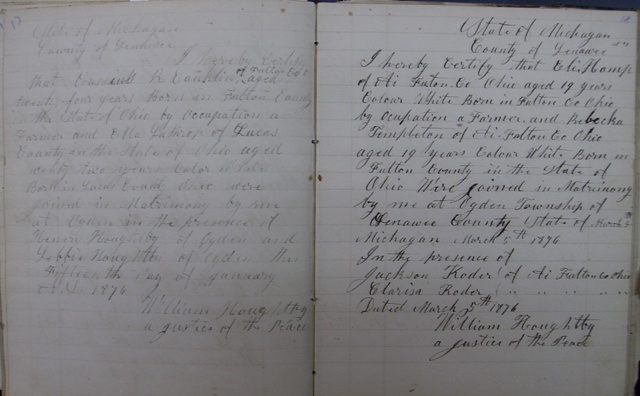 17
State of Michagan
County of Lenawee
I hereby Certify
that Cassius M of Fulton Co O
aged
twenty four years Born in Fulton County
the State of Ohio by Occupation a
Farmer and Ella Lathrop of Lucas
County in the State of Ohio aged
twenty two years Color White
Born in Lucas County Ohio were
joined in Matrimony by me
at Ogden in the presence of
Houghtby of Ogden and
Houghtby of Ogden this
Fifteenth day of January
A.D. 1876
William Houghtby
a Justice of the Peace
18
State of Michagan
County of Lenawee ss
I hereby Certify that Eli Kamp
of Ai Fulton Co Ohio aged 19 years
Colour White Born in Fulton Co Ohio
by Ocupation a Farmer and Rebecka
Templeton of Ai Fulton Co Ohio
aged 19 years Colour White Born in
Fulton County in the State of
Ohio Were joined in Matrimony
by me at Ogden Township of
Lenawee County State of March 5
Michagan March 5th 1876
In the presence of
Jackson Roder of Ai Fulton Co Ohio
Clarisa Roder " " " " "
Dated March 5th 1876
William Houghtby
a Justice of the Peace